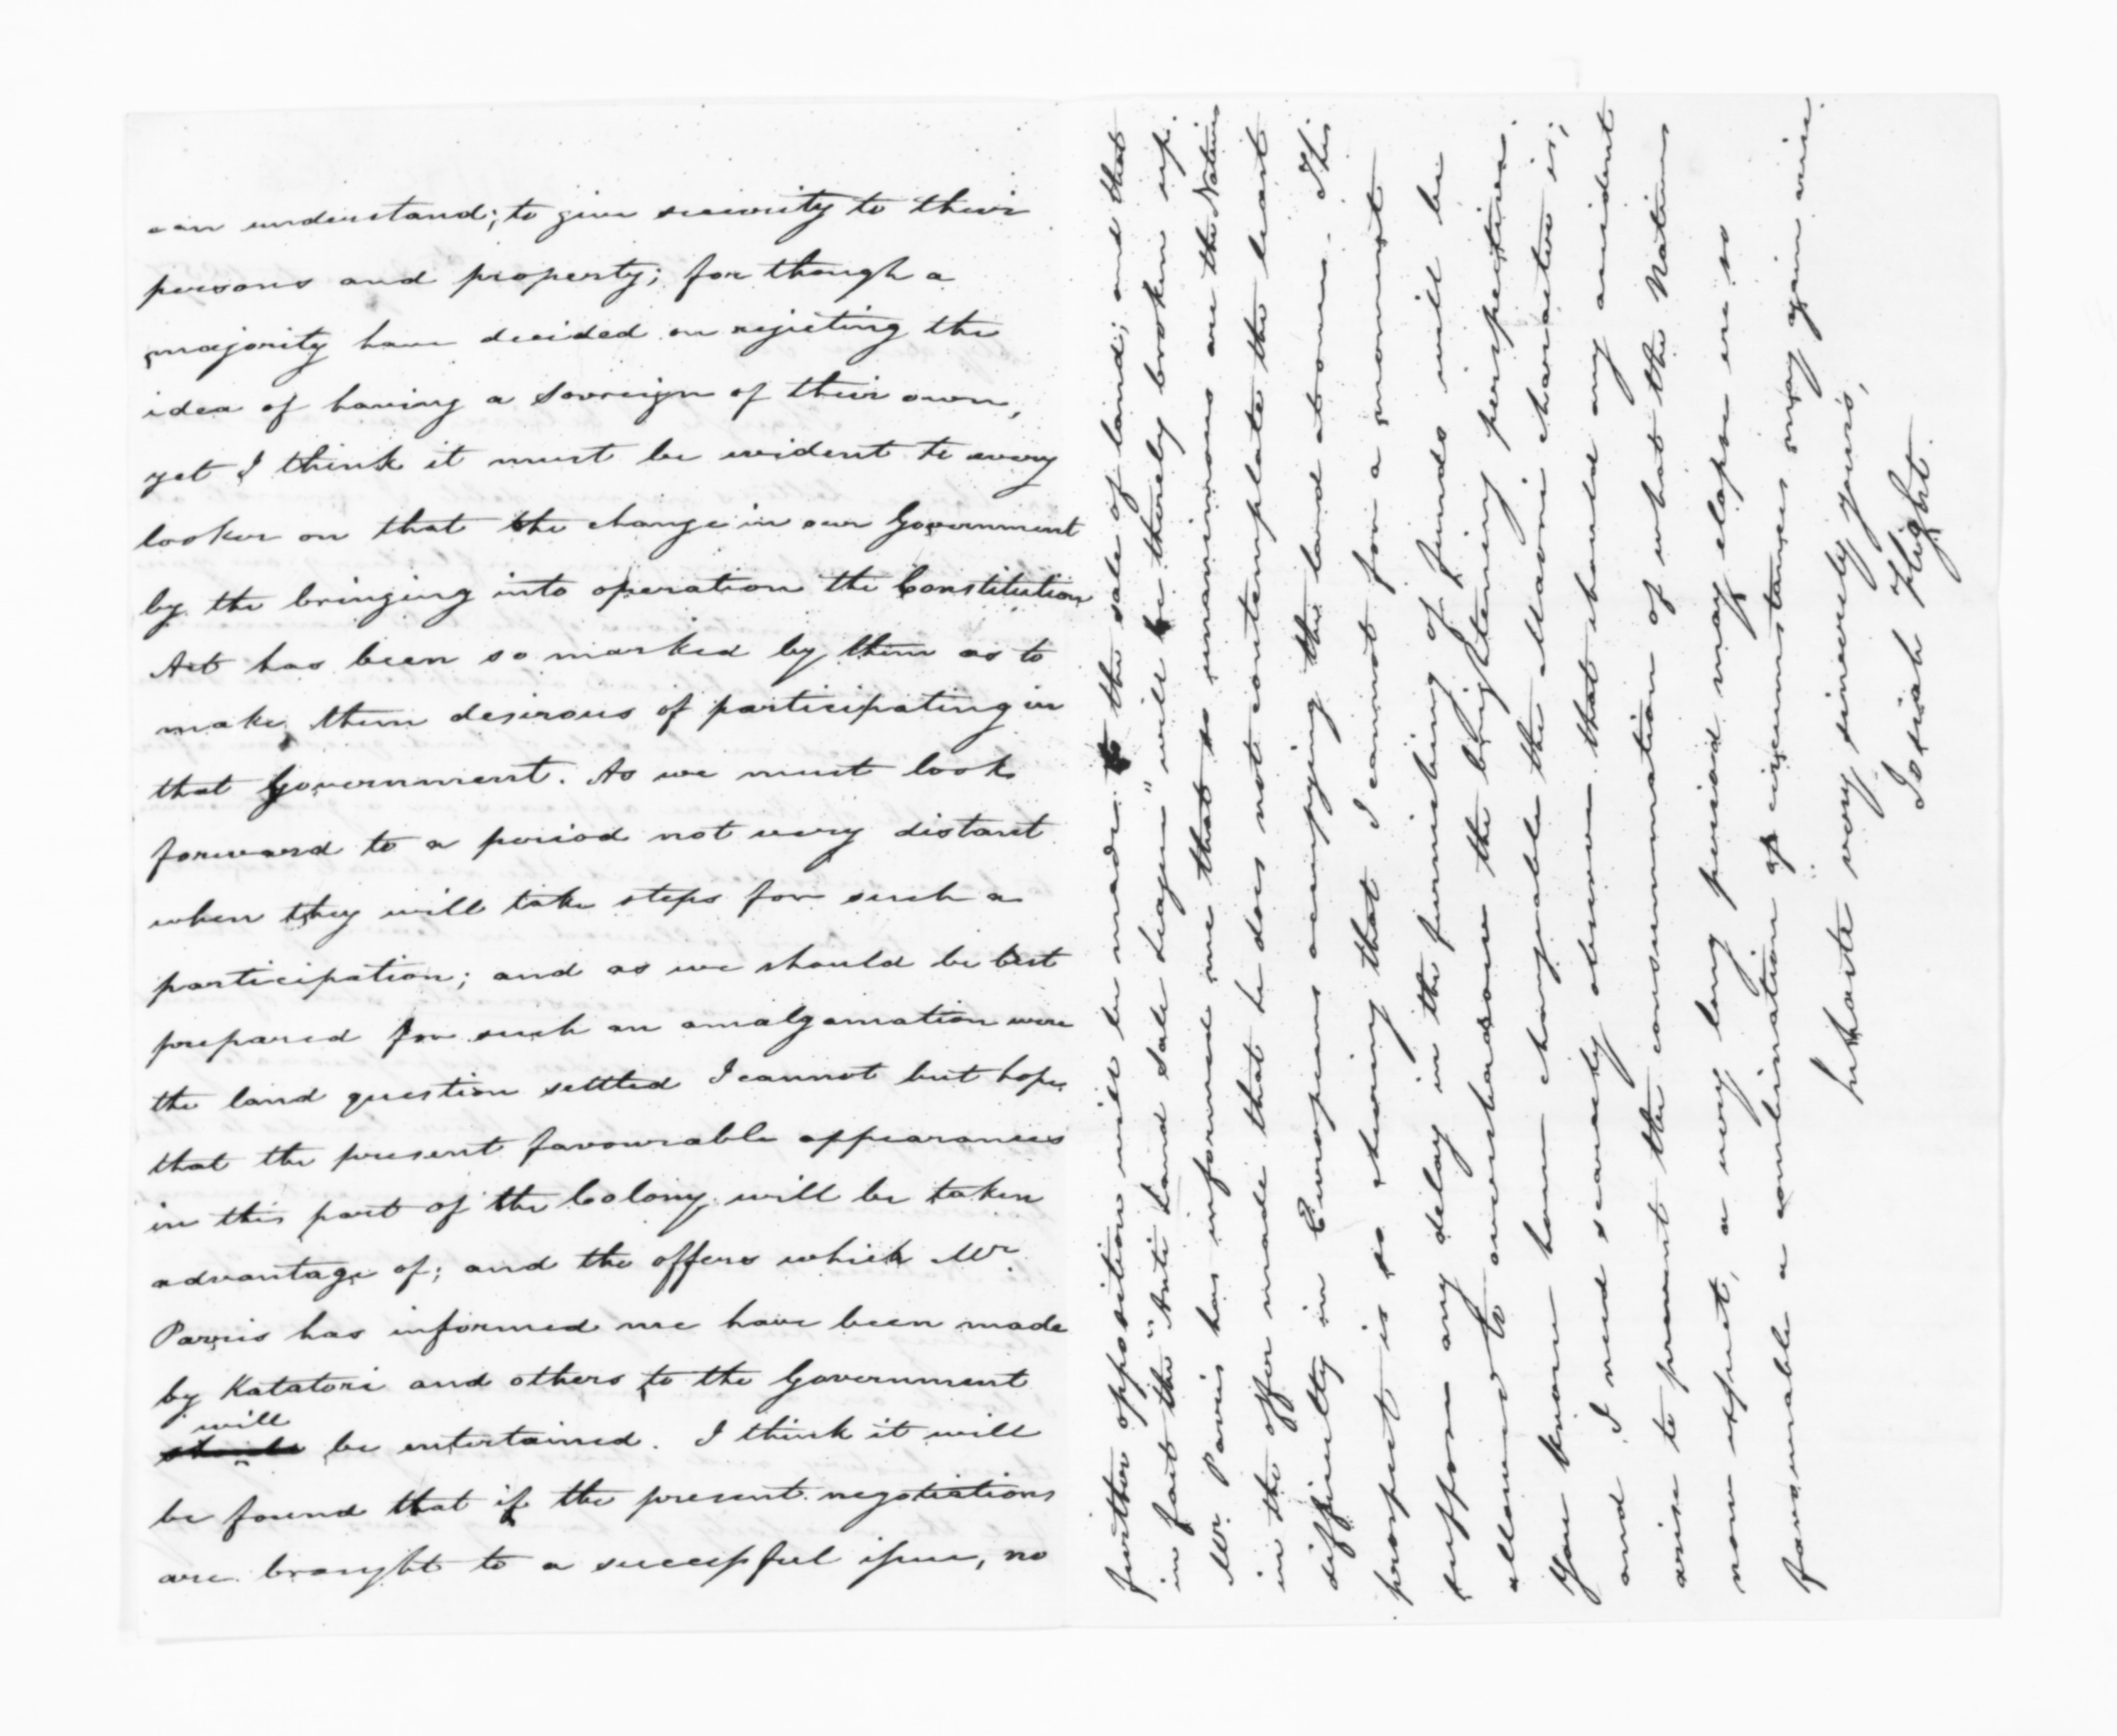 can understand; to give security to their
persons and property; for though a
majority have decided on rejecting the
idea of having a Sovreign of their own,
yet I think it must be evident to every
looker on that the change in our Government
by the bringing into operation the Constitution
Act has been so marked by them as to
make them desirous of participating in
that Government. As we must look
forward to a period not very distant
when they will take steps for such a
participation; and as we should be best
prepared for such an amalgamation were
the land question settled I cannot but hope
that the present favourable appearances
in this part of the Colony will be taken
advantage of; and the offers which Mr.
Parris has informed me have been made
by Katatori and others to the Government
will
be entertained. I think it will
be found that if the present negotiations
are brought to a successful issue, no
further opposition will be made to the sale of land; and that
in fact the "Anti Land Sale League" will be thereby broken up.
Mr. Parris has informed me that so unanimous are the Natives
in the offer made that he does not contemplate the least
difficulty in Europeans occupying the land at once. This
prospect is so cheering that I cannot for a moment
suppose any delay in the furnishing of funds will be
allowed to overshadow the brightening perspective.
You know how changeable the Maori character is;
and I need scarcely observe that should any accident
arise to prevent the consummation of what the Natives
now expect, a very long period may elapse ere so
favourable a combination of circumstances may again arise.
In haste very sincerely yours,
Josiah Flight.